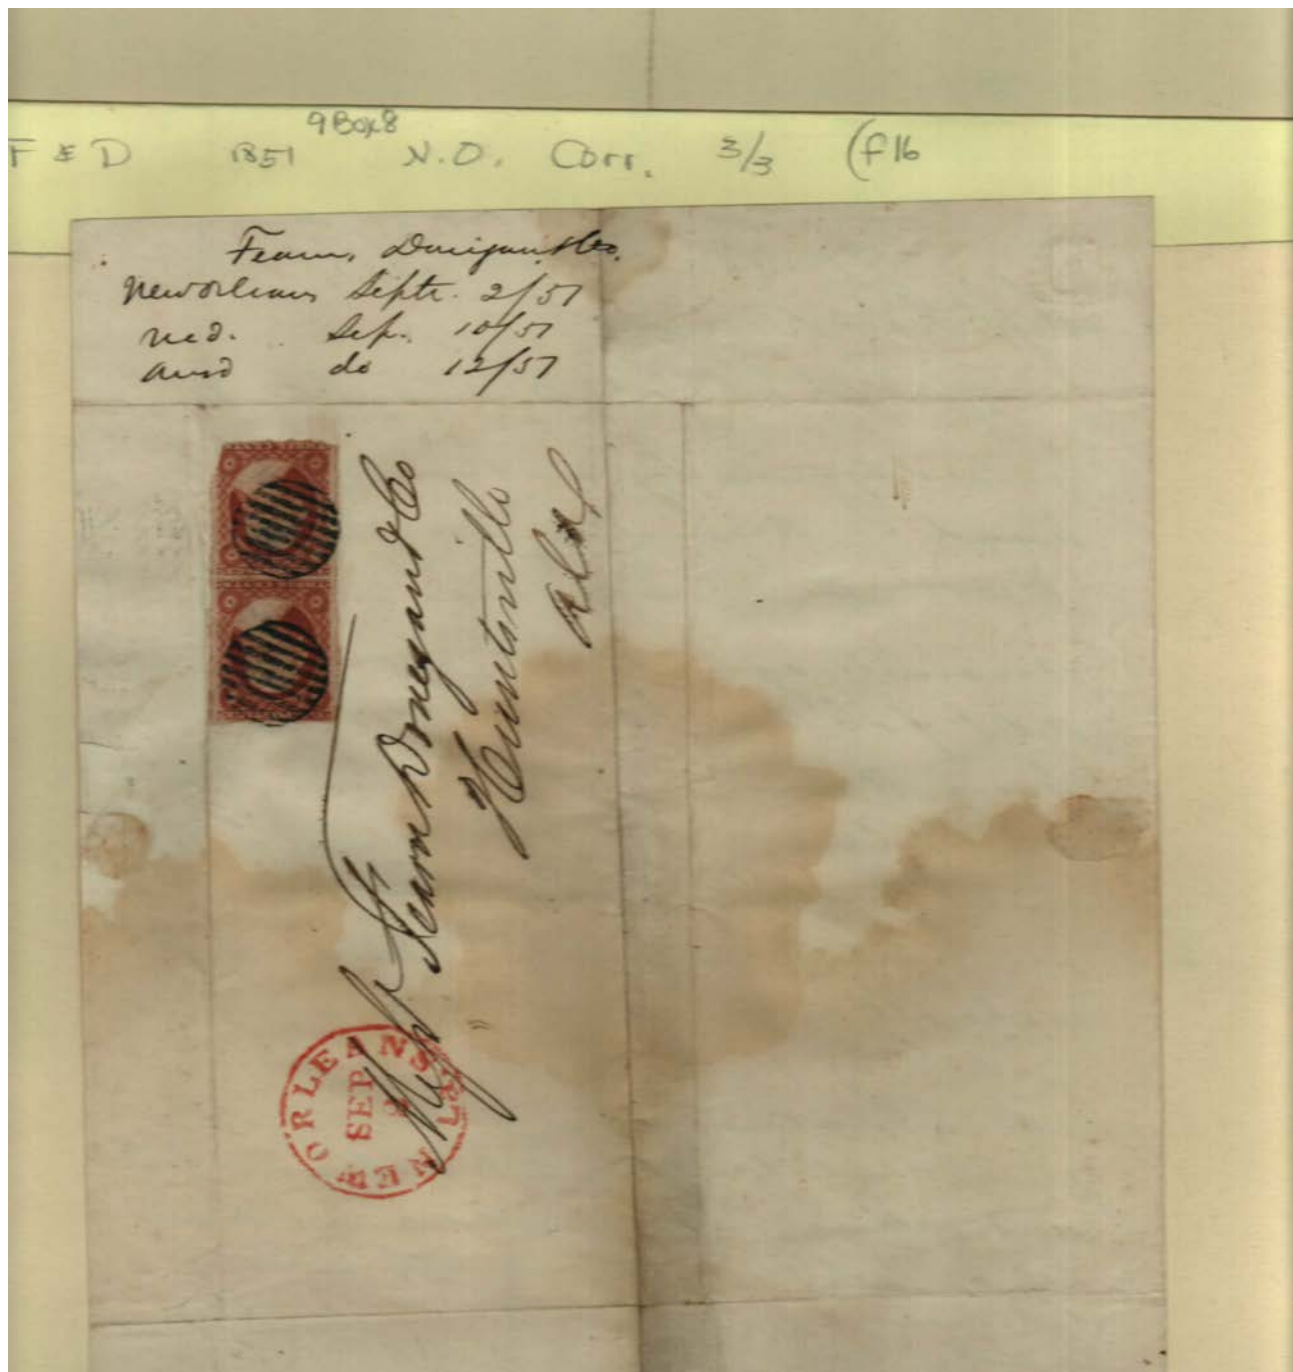 9Box8
F & D 1851 N.O. Corr. 3/3 (f16
Fearn, Donegan & Co.
New Orleans Septr. 2/51
recd. Sep. 10/51
ansd do 12/51
Messrs Fearn Donegan & Co
Huntsville
Ala
NEW ORLEANS La
SEP